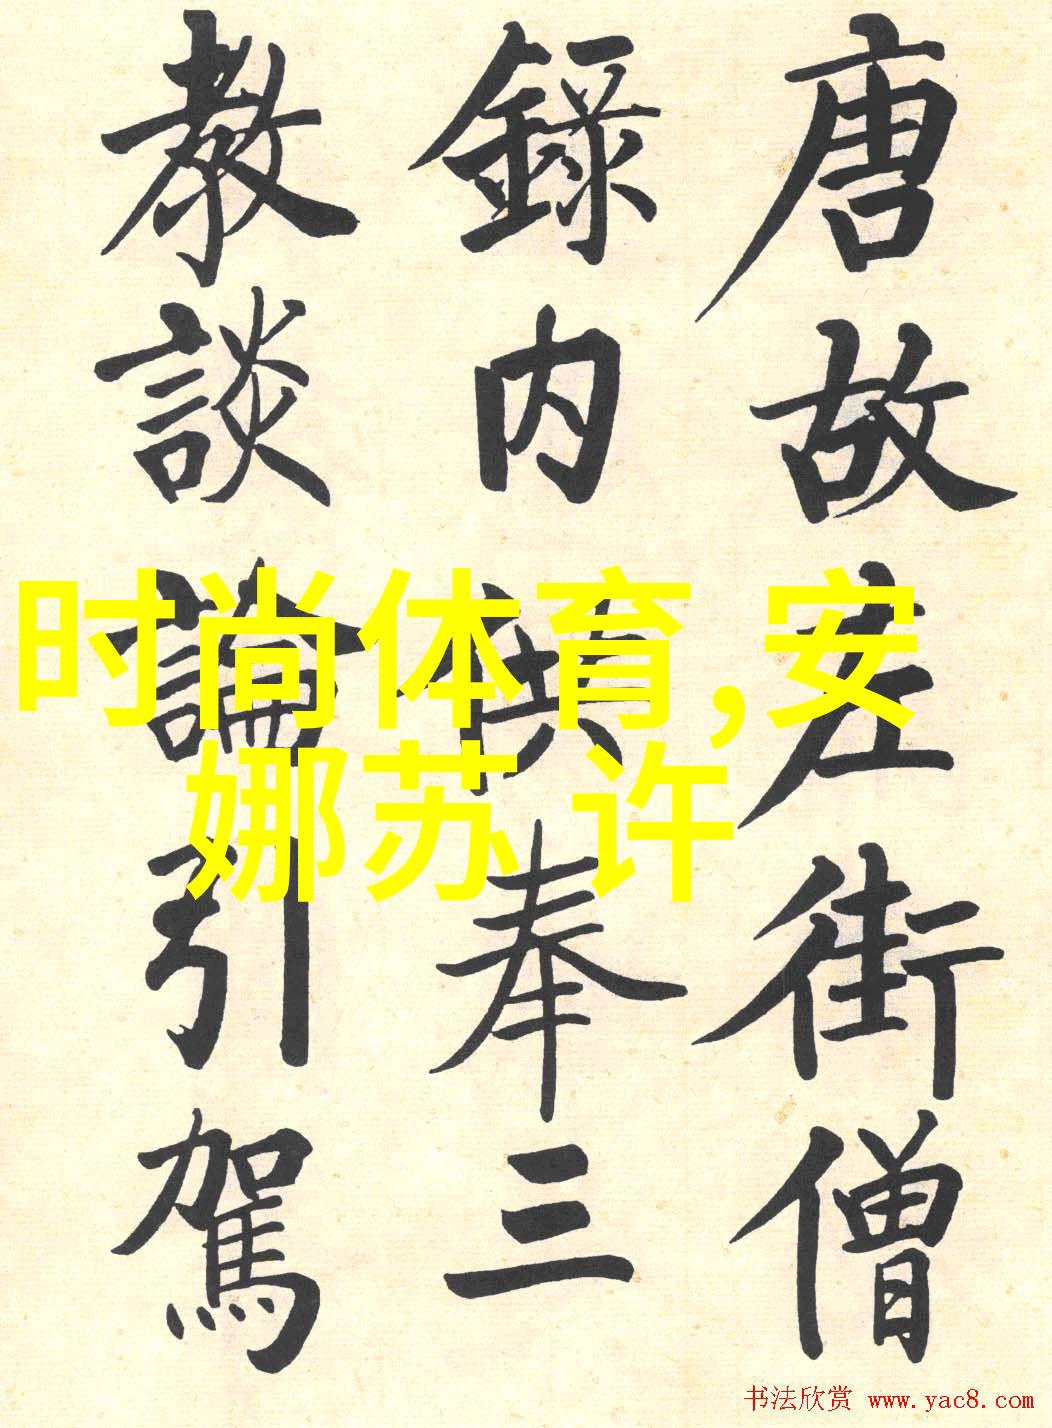 唐故左街僧
錄内供奉三
教談論引駕
时尚体育,安
娜苏 许
书法欣赏 www.yac8.com